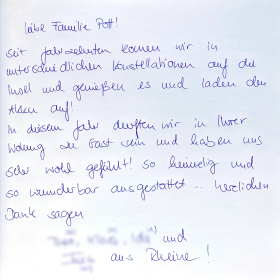 Liebe Familie Pott!
seit Jahrzehnten kommen wir in
unterschiedlichen Konstellationen auf die
Insel und genießen es und laden den
Akku auf!
In diesem Jahr durften wir in Ihrer
Wohnung zu Gast sein und haben uns
sehr wohl gefühlt! So heimelig und
so wunderbar ausgestattet... herzlichen
Dank sagen
und
aus Rheine!